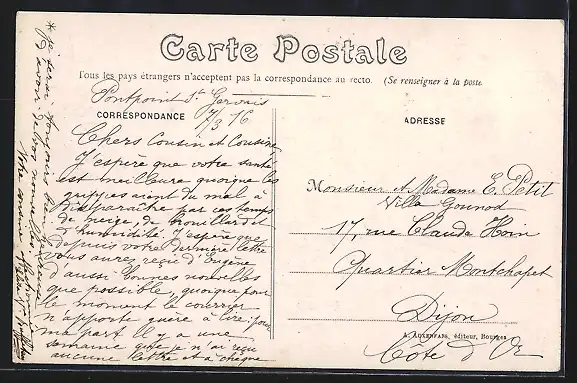 Carte Postale
Tous les pays étrangers n'acceptent pas la correspondance au recto. (Se renseigner à la poste
Pontpoint St Gervais
7/3 16
CORRESPONDANCE
Chers Cousin et Cousine
J'espère que votre santé
est meilleure quoique les
grippes aient du mal à
disparaître par ces temps
de neige, de brouillard et
d'humidité. J'espère que
depuis votre dernière lettre
vous aurez reçu d'Eugène
d'aussi bonnes nouvelles
que possible, quoique pour
le moment le courrier
n'apporte guère à lire: pour
ma part il y a une
semaine que je n'ai reçu
aucune lettre et à chaque
* Je serai toujours bien heureuse
d'avoir de bonnes nouvelles
Votre cousine
ADRESSE
Monsieur et Madame E. Petit
Villa Gounod
17, rue Claude Hoin
Quartier Montchapet
Dijon
A. AUXENFANS, éditeur, Bourges
Côte d'Or